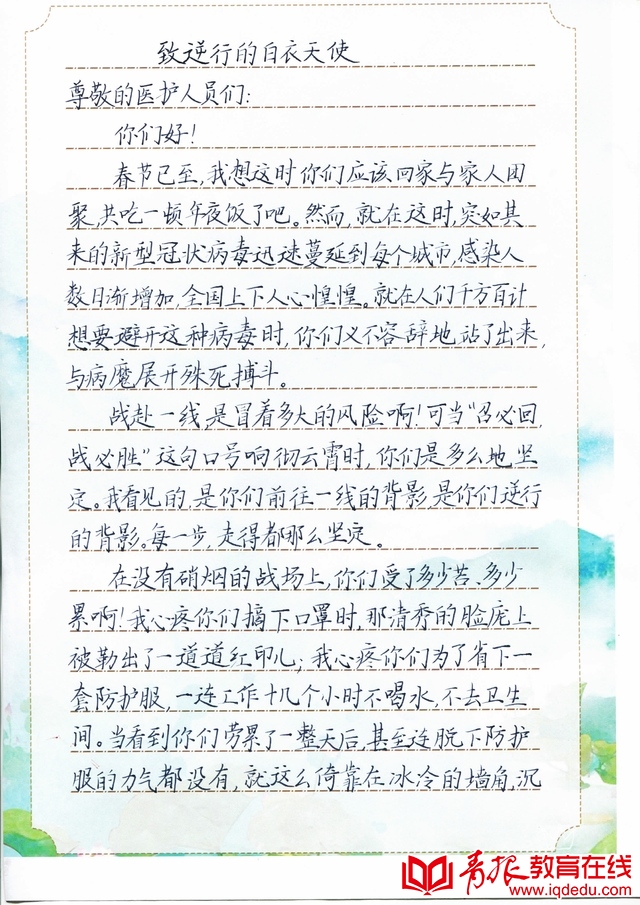 致逆行的白衣天使
尊敬的医护人员们:
你们好!
春节已至,我想这时你们应该回家与家人团
聚,共吃一顿年夜饭了吧。然而,就在这时,突如其
来的新型冠状病毒迅速蔓延到每个城市,感染人
数日渐增加,全国上下人心惶惶。就在人们千方百计
想要避开这种病毒时,你们义不容辞地站了出来,
与病魔展开殊死搏斗。
战赴一线,是冒着多大的风险啊!可当“召必回,
战必胜”这句口号响彻云霄时,你们是多么地坚
定。我看见的,是你们前往一线的背影,是你们逆行
的背影。每一步,走得都那么坚定。
在没有硝烟的战场上,你们受了多少苦、多少
累啊!我心疼你们摘下口罩时,那清秀的脸庞上
被勒出了一道道红印儿;我心疼你们为了省下一
套防护服,一连工作十几个小时不喝水,不去卫生
间。当看到你们劳累了一整天后,甚至连脱下防护
服的力气都没有,就这么倚靠在冰冷的墙角,沉
青报教育在线
www.iqdedu.com